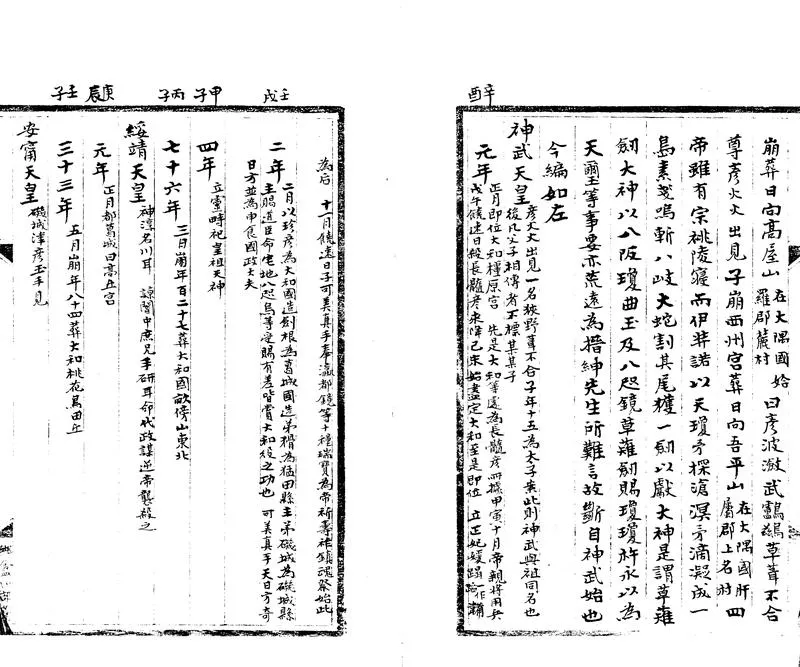 崩葬日向高屋山在大隅國姶羅郡麓村曰彦波瀲武鸕鷀草葺不合
尊彦火火出見子崩西州宮葬日向吾平山在大隅國肝屬郡上名村四
帝雖有宗祧陵寢而伊弉諾以天瓊矛探滄溟矛滴凝成一
島素戔嗚斬八岐大蛇割其尾獲一劔以獻大神是謂草薙
劔大神以八阪瓊曲玉及八咫鏡草薙劔賜瓊瓊杵永以為
天璽等事要亦荒遠為搢紳先生所難言故斷自神武始也
今編如左
神武天皇彦火火出見一名狹野葺不合子年十五為太子案此則神武與祖同名也後凡父子相傳者不標某某子
辛酉
元年正月即位大和橿原宮 先是大和等處為長髓彦所據甲寅十月帝親將用兵戊午饒速日殺長髓彦來降己未始盡定大和至是即位 立正妃媛蹈
為后 十一月饒速日子可美真手奉瀛都鏡等十種瑞寶為帝祈壽祚鎮魂祭始此
壬戌
二年二月以珍彦為大和國造劔根為葛城國造弟猾為猛田縣主弟磯城為磯城縣主賜道臣命宅地八咫烏等受賜有差皆賞大和役之功也 可美真手天日方奇日方並為申食國政大夫
甲子
四年立靈畤祀皇祖天神
丙子
七十六年三日崩年百二十七葬大和國畝傍山東北
綏靖天皇神渟名川耳 諒闇中庶兄手研耳命代政謀逆帝襲殺之
庚辰
元年正月都葛城曰高丘宮
壬子
三十三年五月崩年八十四葬大和桃花鳥田丘
安甯天皇磯城津彦玉手見